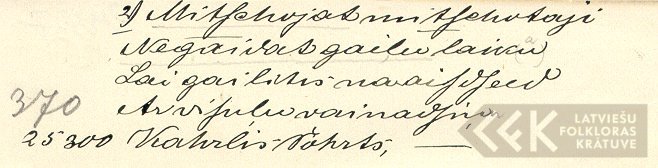 2) Mitschojat mitschotaji
Negaidat gailu laiku
Lai gailitis naaisdseed
Ar visulu vainadsiņ
370
25300 Kahrlis Pohrts,
LATVIEŠU
FOLKLORAS
KRĀTUVE